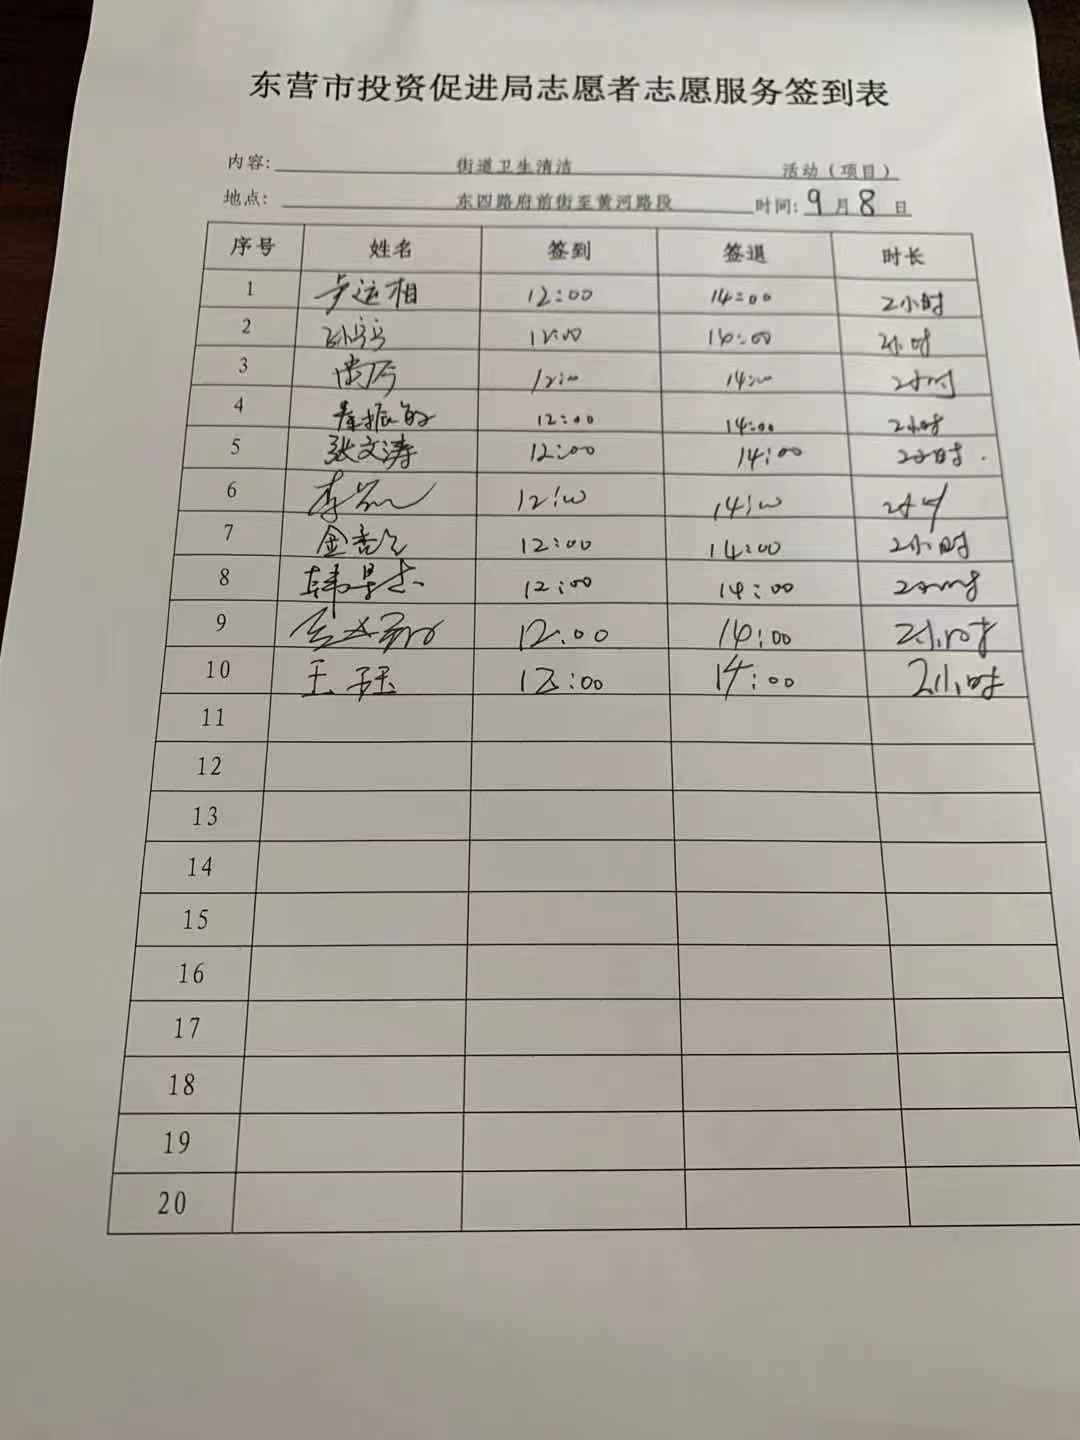 东营市投资促进局志愿者志愿服务签到表
内容: 街道卫生清洁 活动（项目）
地点: 东四路府前街至黄河路段 时间: 9月8日
序号 姓名 签到 签退 时长
1 卢运相 12:00 14:00 2小时
2 12:00 14:00 2小时
3 12:00 14:00 2小时
4 12:00 14:00 2小时
5 张文涛 12:00 14:00 2小时
6 12:00 14:00 2小时
7 12:00 14:00 2小时
8 12:00 14:00 2小时
9 12:00 14:00 2小时
10 王 12:00 14:00 2小时
11
12
13
14
15
16
17
18
19
20